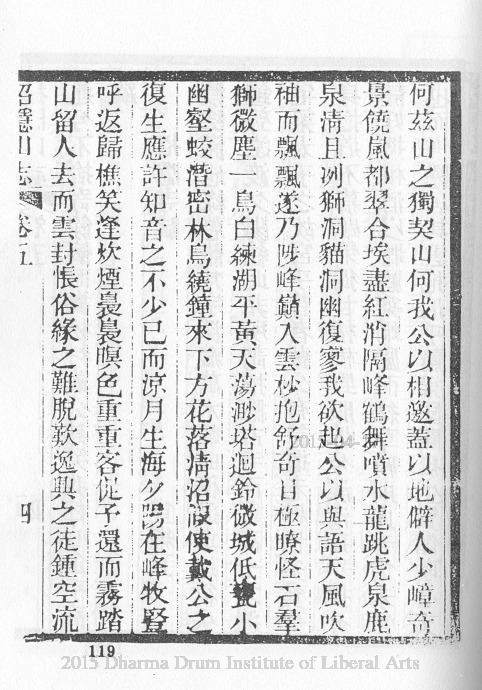 何茲山之獨契山何我公以相邀蓋以地僻人少嶂奇
景饒嵐都翠合埃盡紅消隔峰鶴舞噴水龍跳虎泉鹿
泉清且冽獅洞貓洞幽復寥我欲起公以與語天風吹
袖而飄飄遂乃陟峰巔入雲杪抱舒奇目極瞭怪石羣
獅微塵一鳥白練湖平黃天蕩渺塔迴鈴微城低甕小
幽壑蛟潛密林烏繞鐘來下方花落清沼假使戴公之
復生應許知音之不少已而涼月生海夕陽在峰牧豎
呼返歸樵笑逢炊煙裊裊暝色重重客從予還而霧踏
山留人去而雲封悵俗緣之難脫歎逸興之徒鍾空流
招隱山志 卷五 四
119
2015 Dharma Drum Institute of Liberal Arts